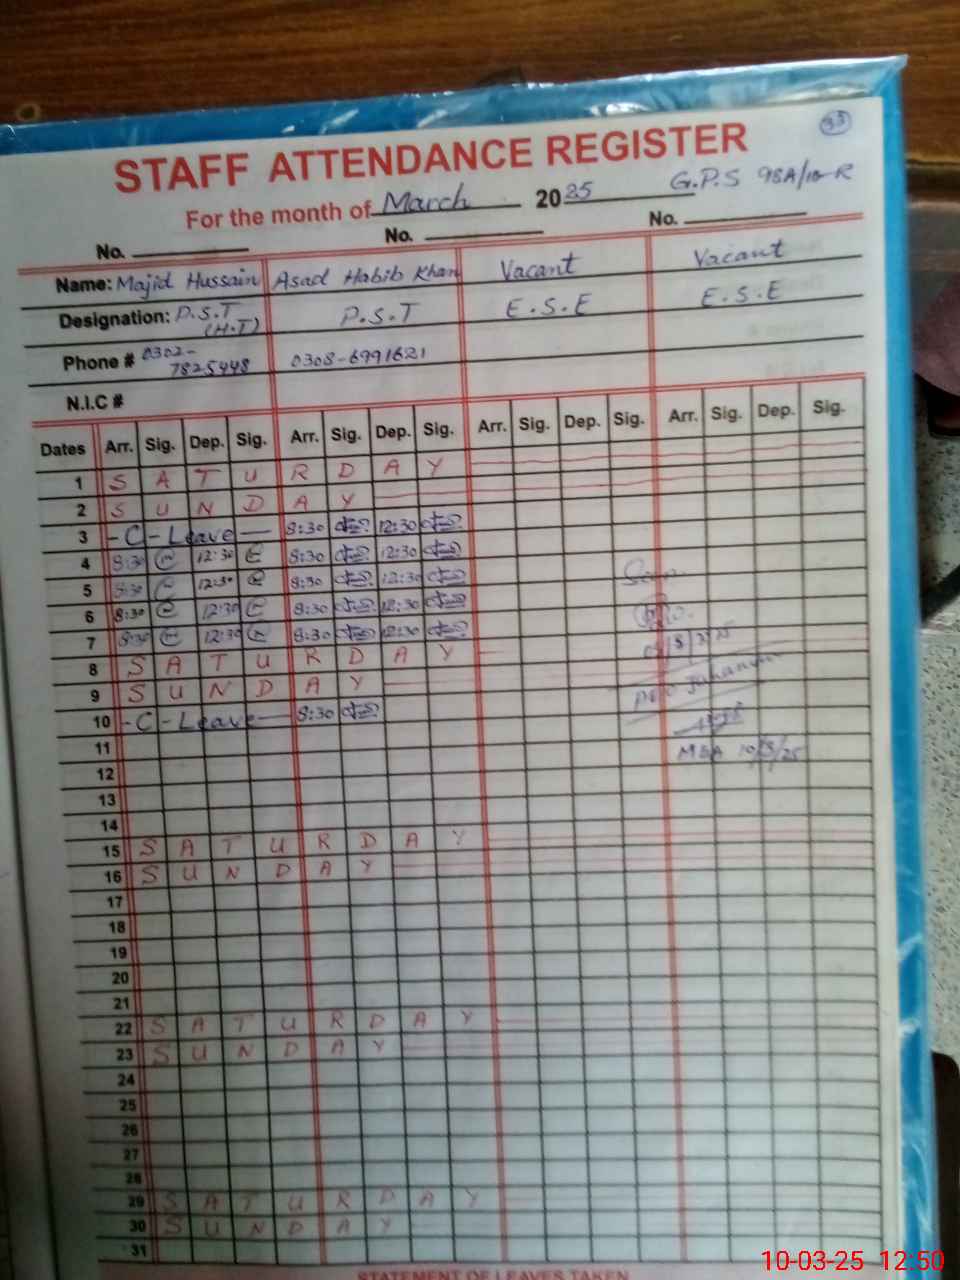 33
STAFF ATTENDANCE REGISTER
For the month of March 2025 G.P.S 98A/10-R
No. No. No.
Name: Majid Hussain Asad Habib Khan Vacant Vacant
Designation: P.S.T (H.T) P.S.T E.S.E E.S.E
Phone # 0302-7825448 0308-6991621
N.I.C #
Dates Arr. Sig. Dep. Sig. Arr. Sig. Dep. Sig. Arr. Sig. Dep. Sig. Arr. Sig. Dep. Sig.
1 S A T U R D A Y
2 S U N D A Y
3 -C-Leave- 8:30 12:30
4 8:30 12:30 8:30 12:30
5 8:30 12:30 8:30 12:30
6 8:30 12:30 8:30 12:30
7 8:30 12:30 8:30 12:30
8 S A T U R D A Y
9 S U N D A Y
10 -C-Leave- 8:30
11
MEA 10/3/25
12
13
14
15 S A T U R D A Y
16 S U N D A Y
17
18
19
20
21
22 S A T U R D A Y
23 S U N D A Y
24
25
26
27
28
29 S A T U R D A Y
30 S U N D A Y
31
STATEMENT OF LEAVES TAKEN
10-03-25 12:50